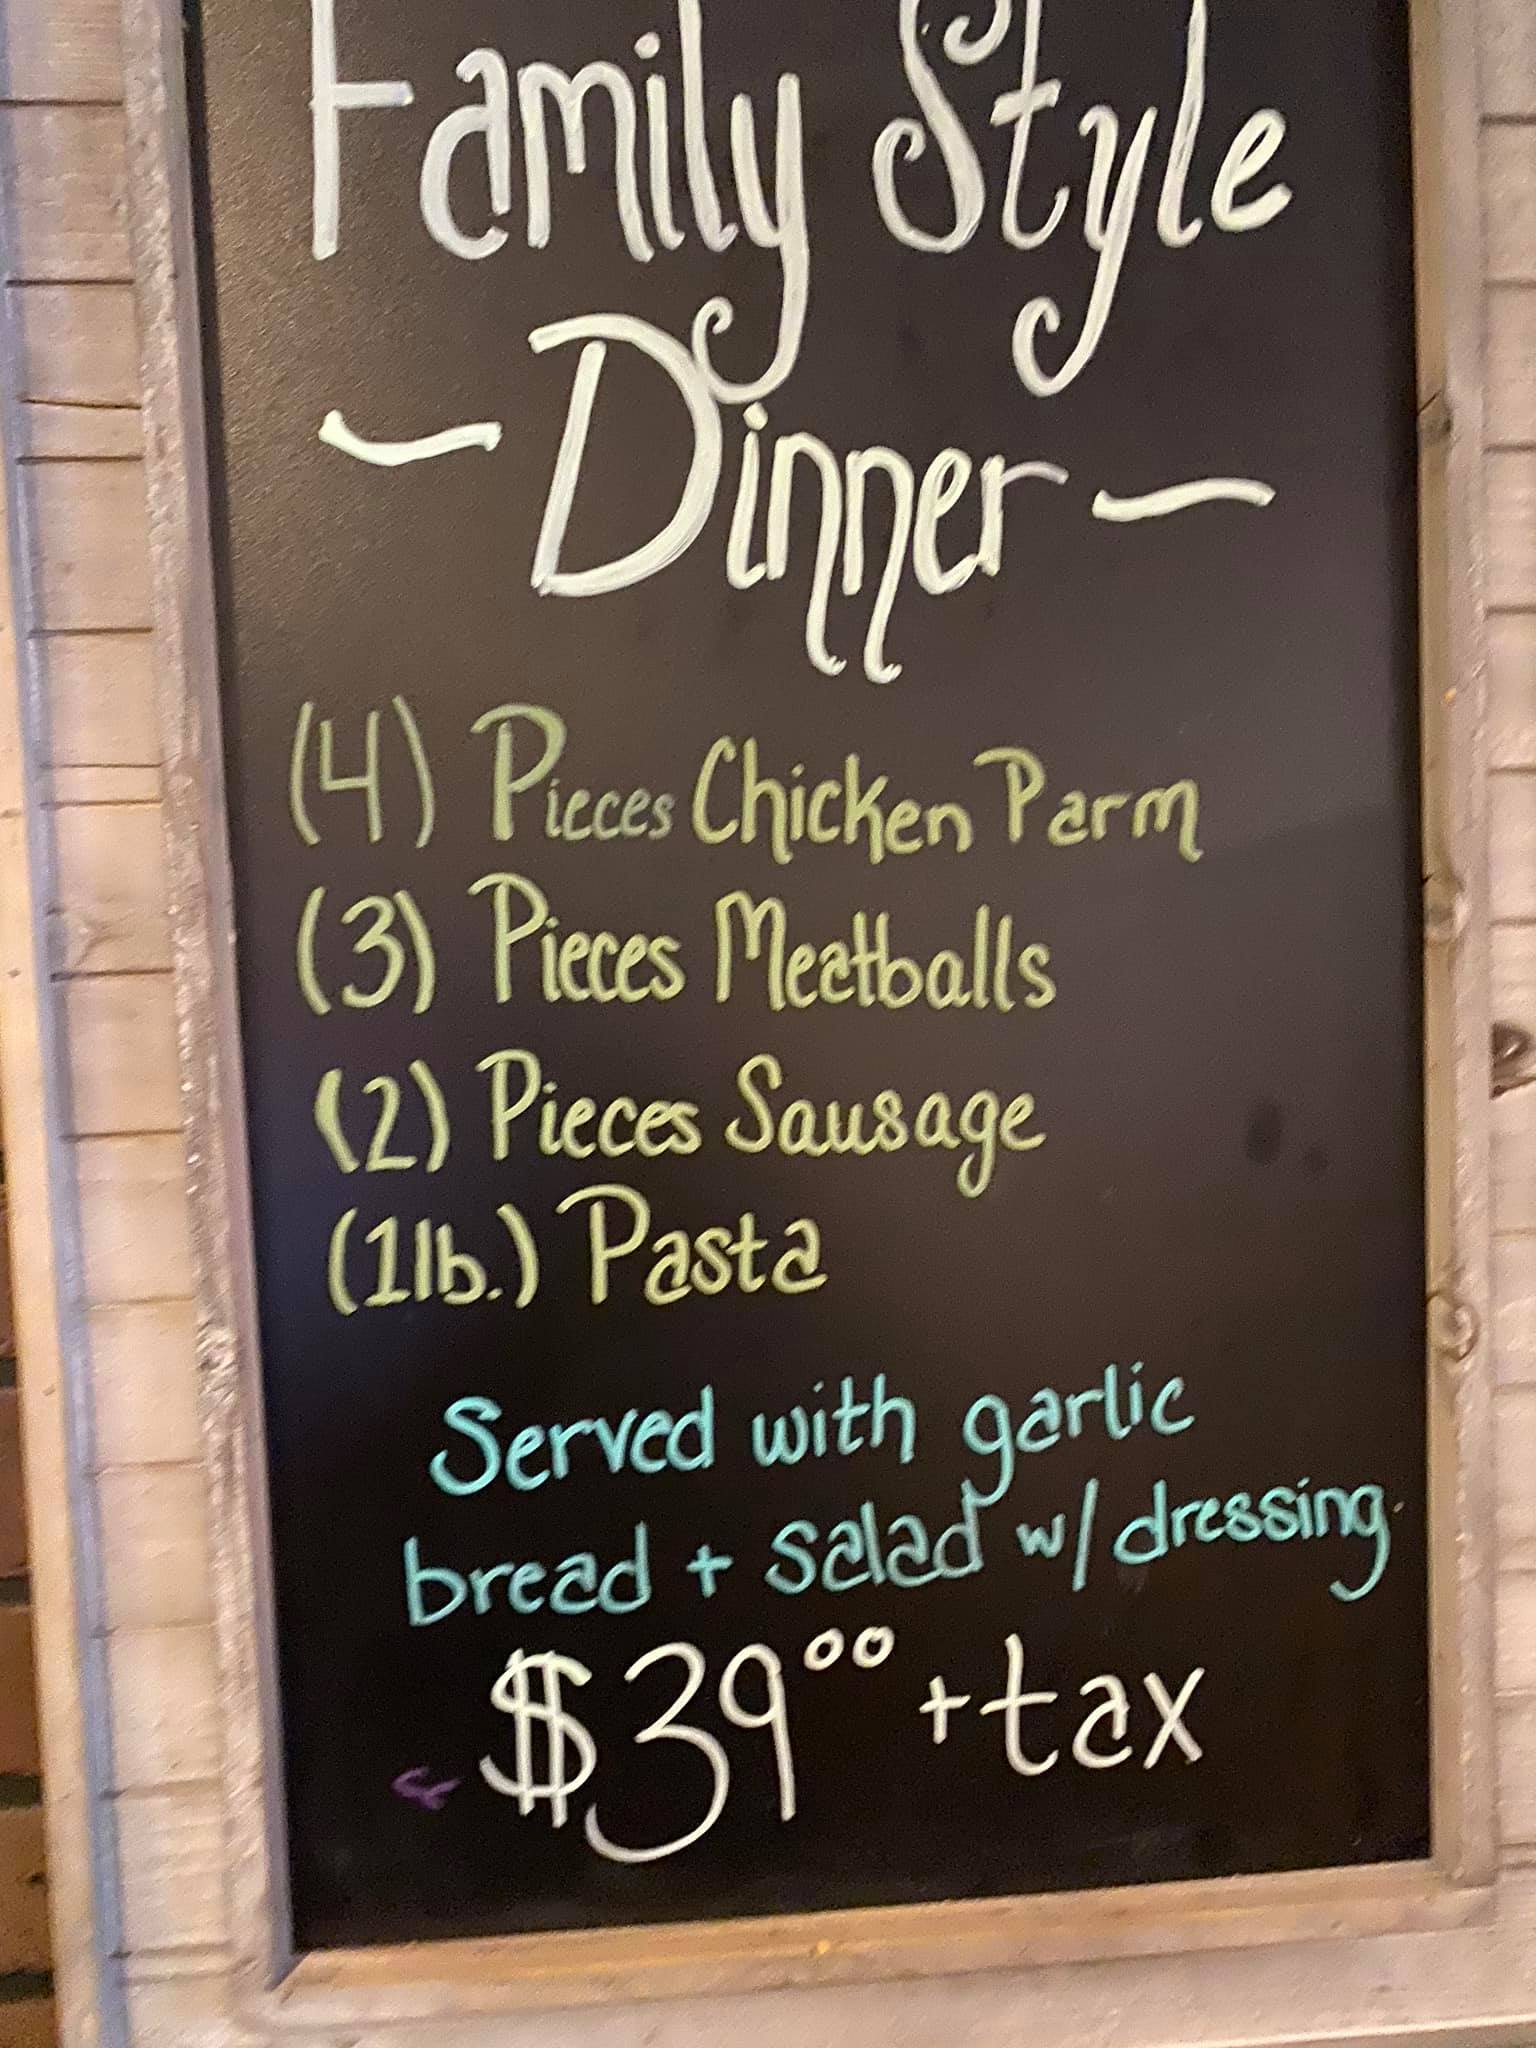 Family Style
~ Dinner ~
(4) Pieces Chicken Parm
(3) Pieces Meatballs
(2) Pieces Sausage
(1lb.) Pasta
Served with garlic
bread + salad w/ dressing
$39⁰⁰ + tax